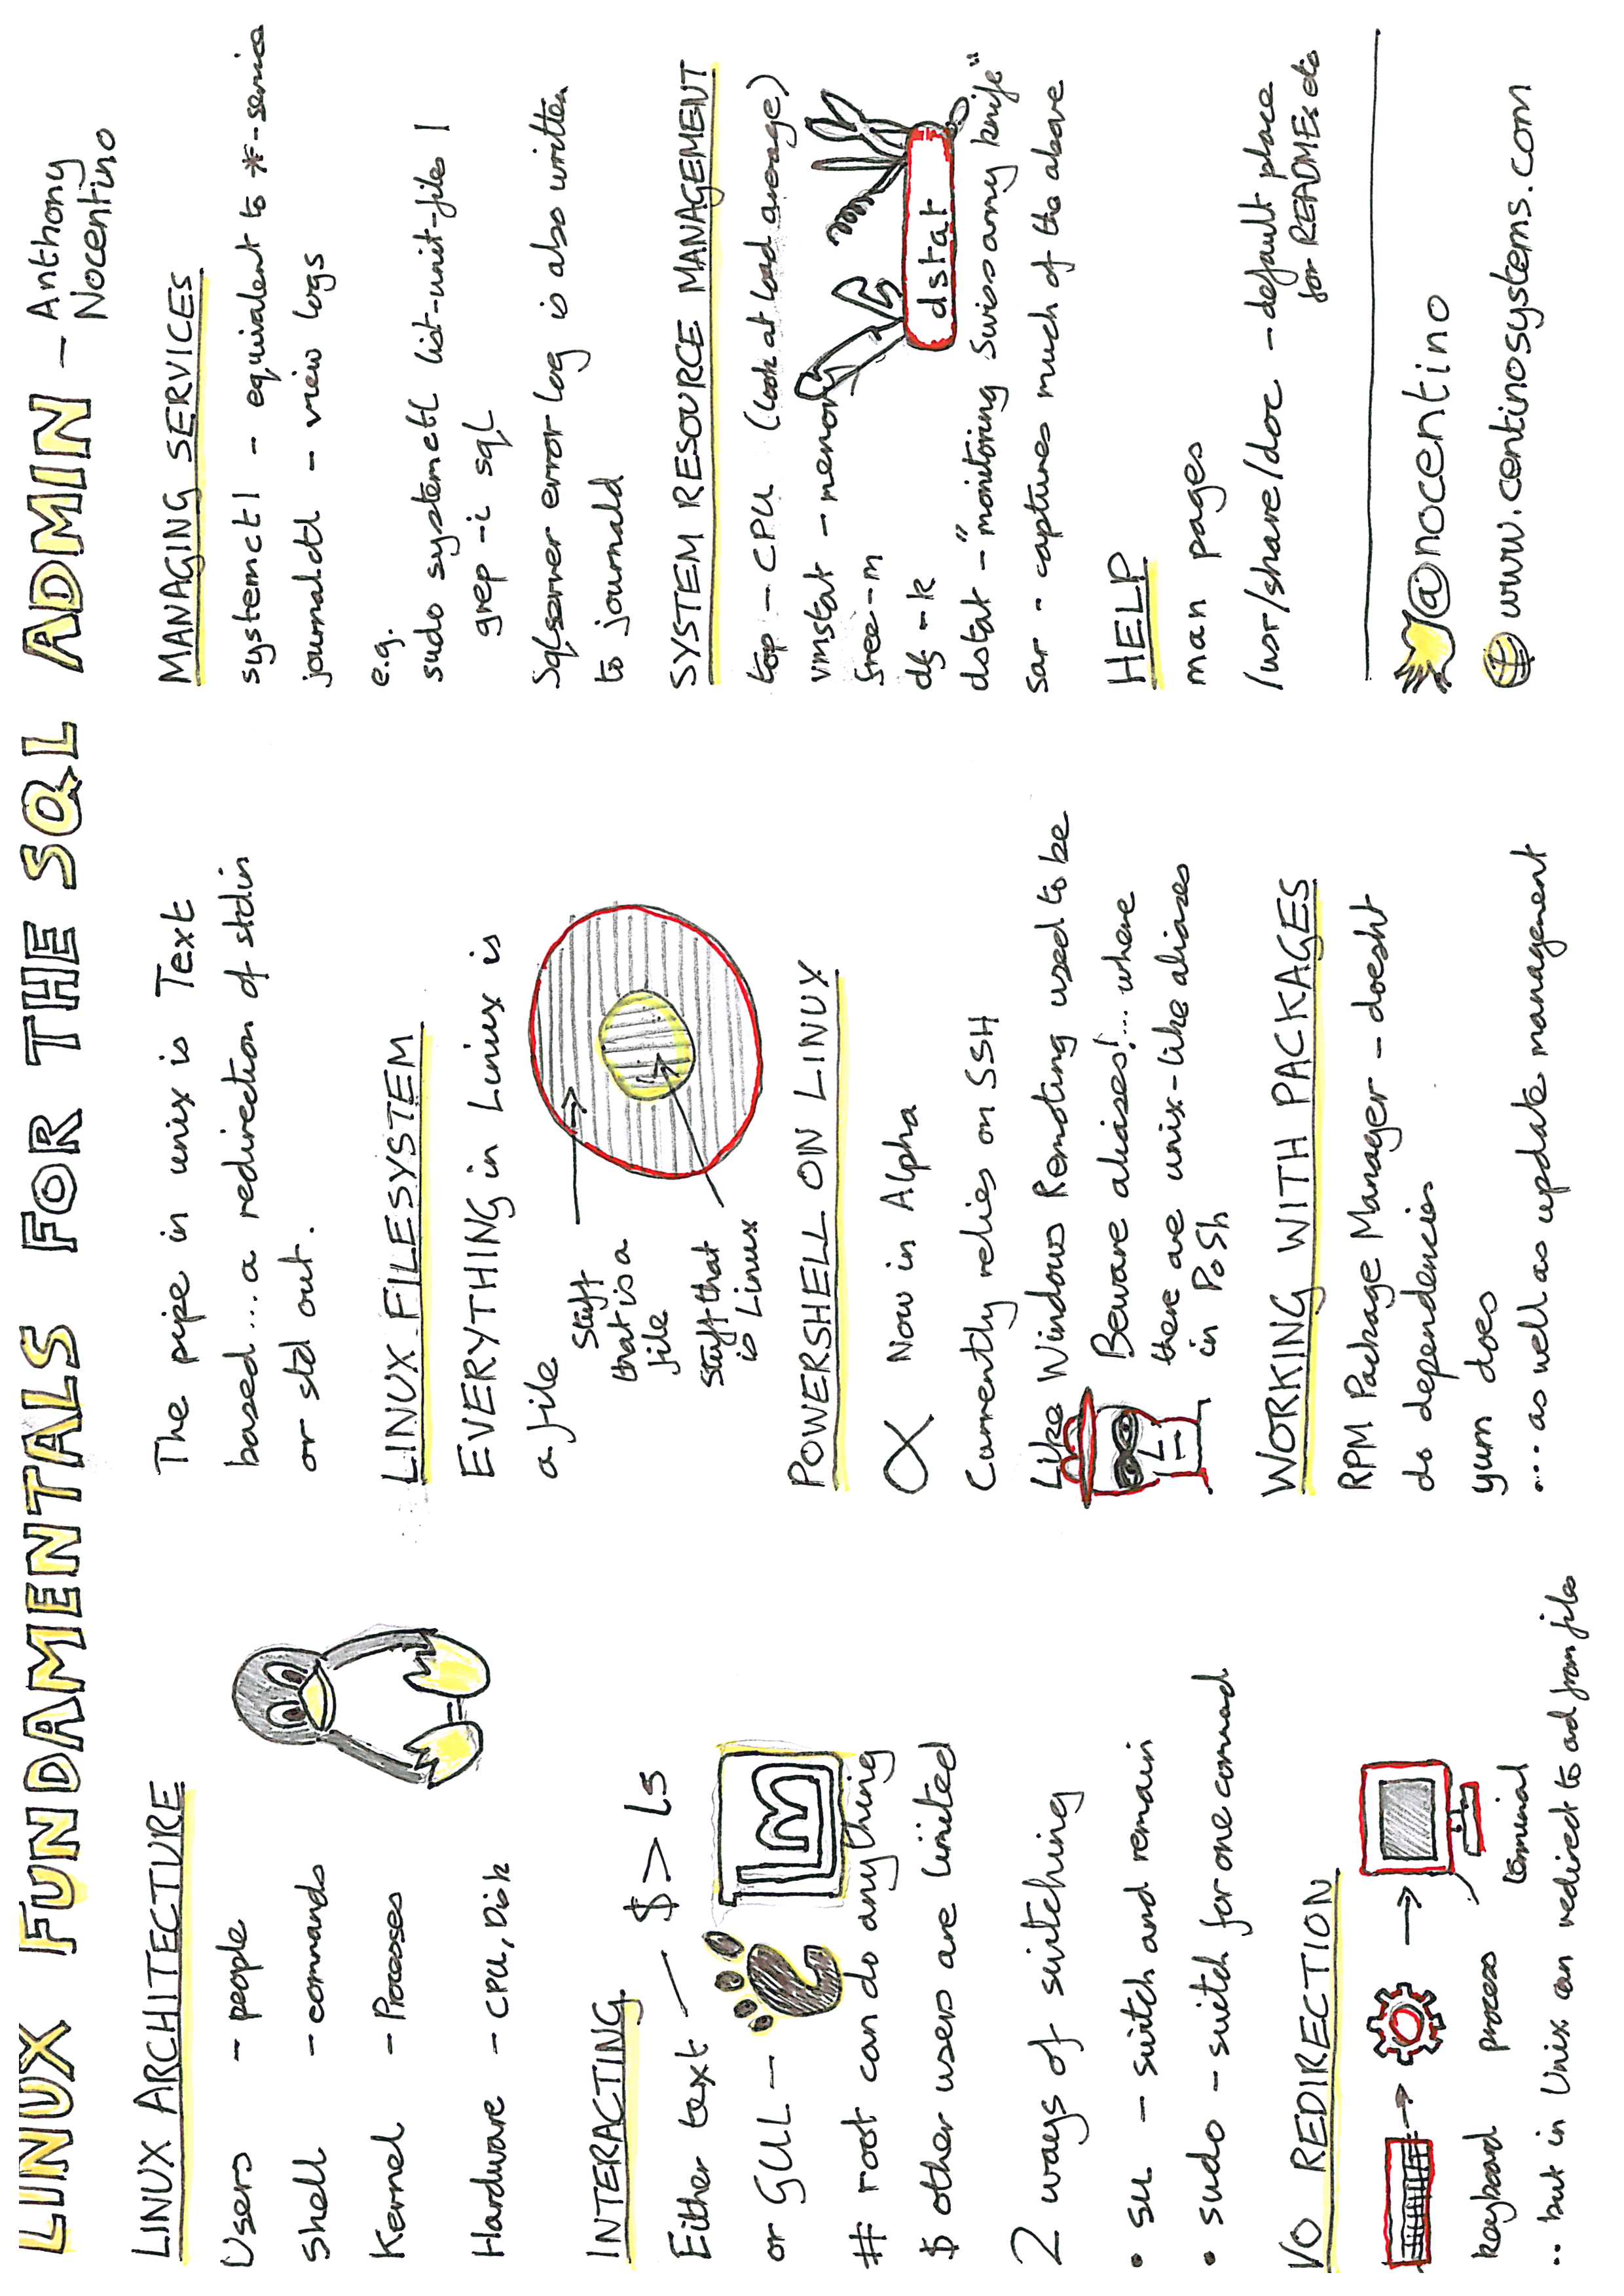 LINUX FUNDAMENTALS FOR THE SQL ADMIN - Anthony
Nocentino
LINUX ARCHITECTURE
Users - people
Shell - commands
Kernel - Processes
Hardware - CPU, Disk
INTERACTING
Either text - $> ls
or GUI -
Lm
# root can do anything
$ other users are limited
2 ways of switching
• su - switch and remain
• sudo - switch for one command
I/O REDIRECTION
keyboard process
terminal
.. but in Unix can redirect to and from files
The pipe in unix is Text
based ... a redirection of stdin
or std out.
LINUX FILESYSTEM
EVERYTHING in Linux is
a file
Stuff
that is a
file
Stuff that
is Linux
POWERSHELL ON LINUX
α Now in Alpha
Currently relies on SSH
Like Windows Remoting used to be
Beware aliases!... where
there are unix-like aliases
in PoSh
WORKING WITH PACKAGES
RPM Package Manager - doesn't
do dependencies
yum does
.... as well as update management
MANAGING SERVICES
systemctl - equivalent to *-service
journalctl - view logs
e.g.
sudo systemctl list-unit-files |
grep -i sql
Sqlserver error log is also written
to journald
SYSTEM RESOURCE MANAGEMENT
top - CPU (look at load average)
vmstat - memory
free -m
df -k
dstat
dstat - "monitoring Swiss army knife"
sar - captures much of the above
HELP
man pages
/usr/share/doc - default place
for READMEs etc
@nocentino
www.centinosystems.com